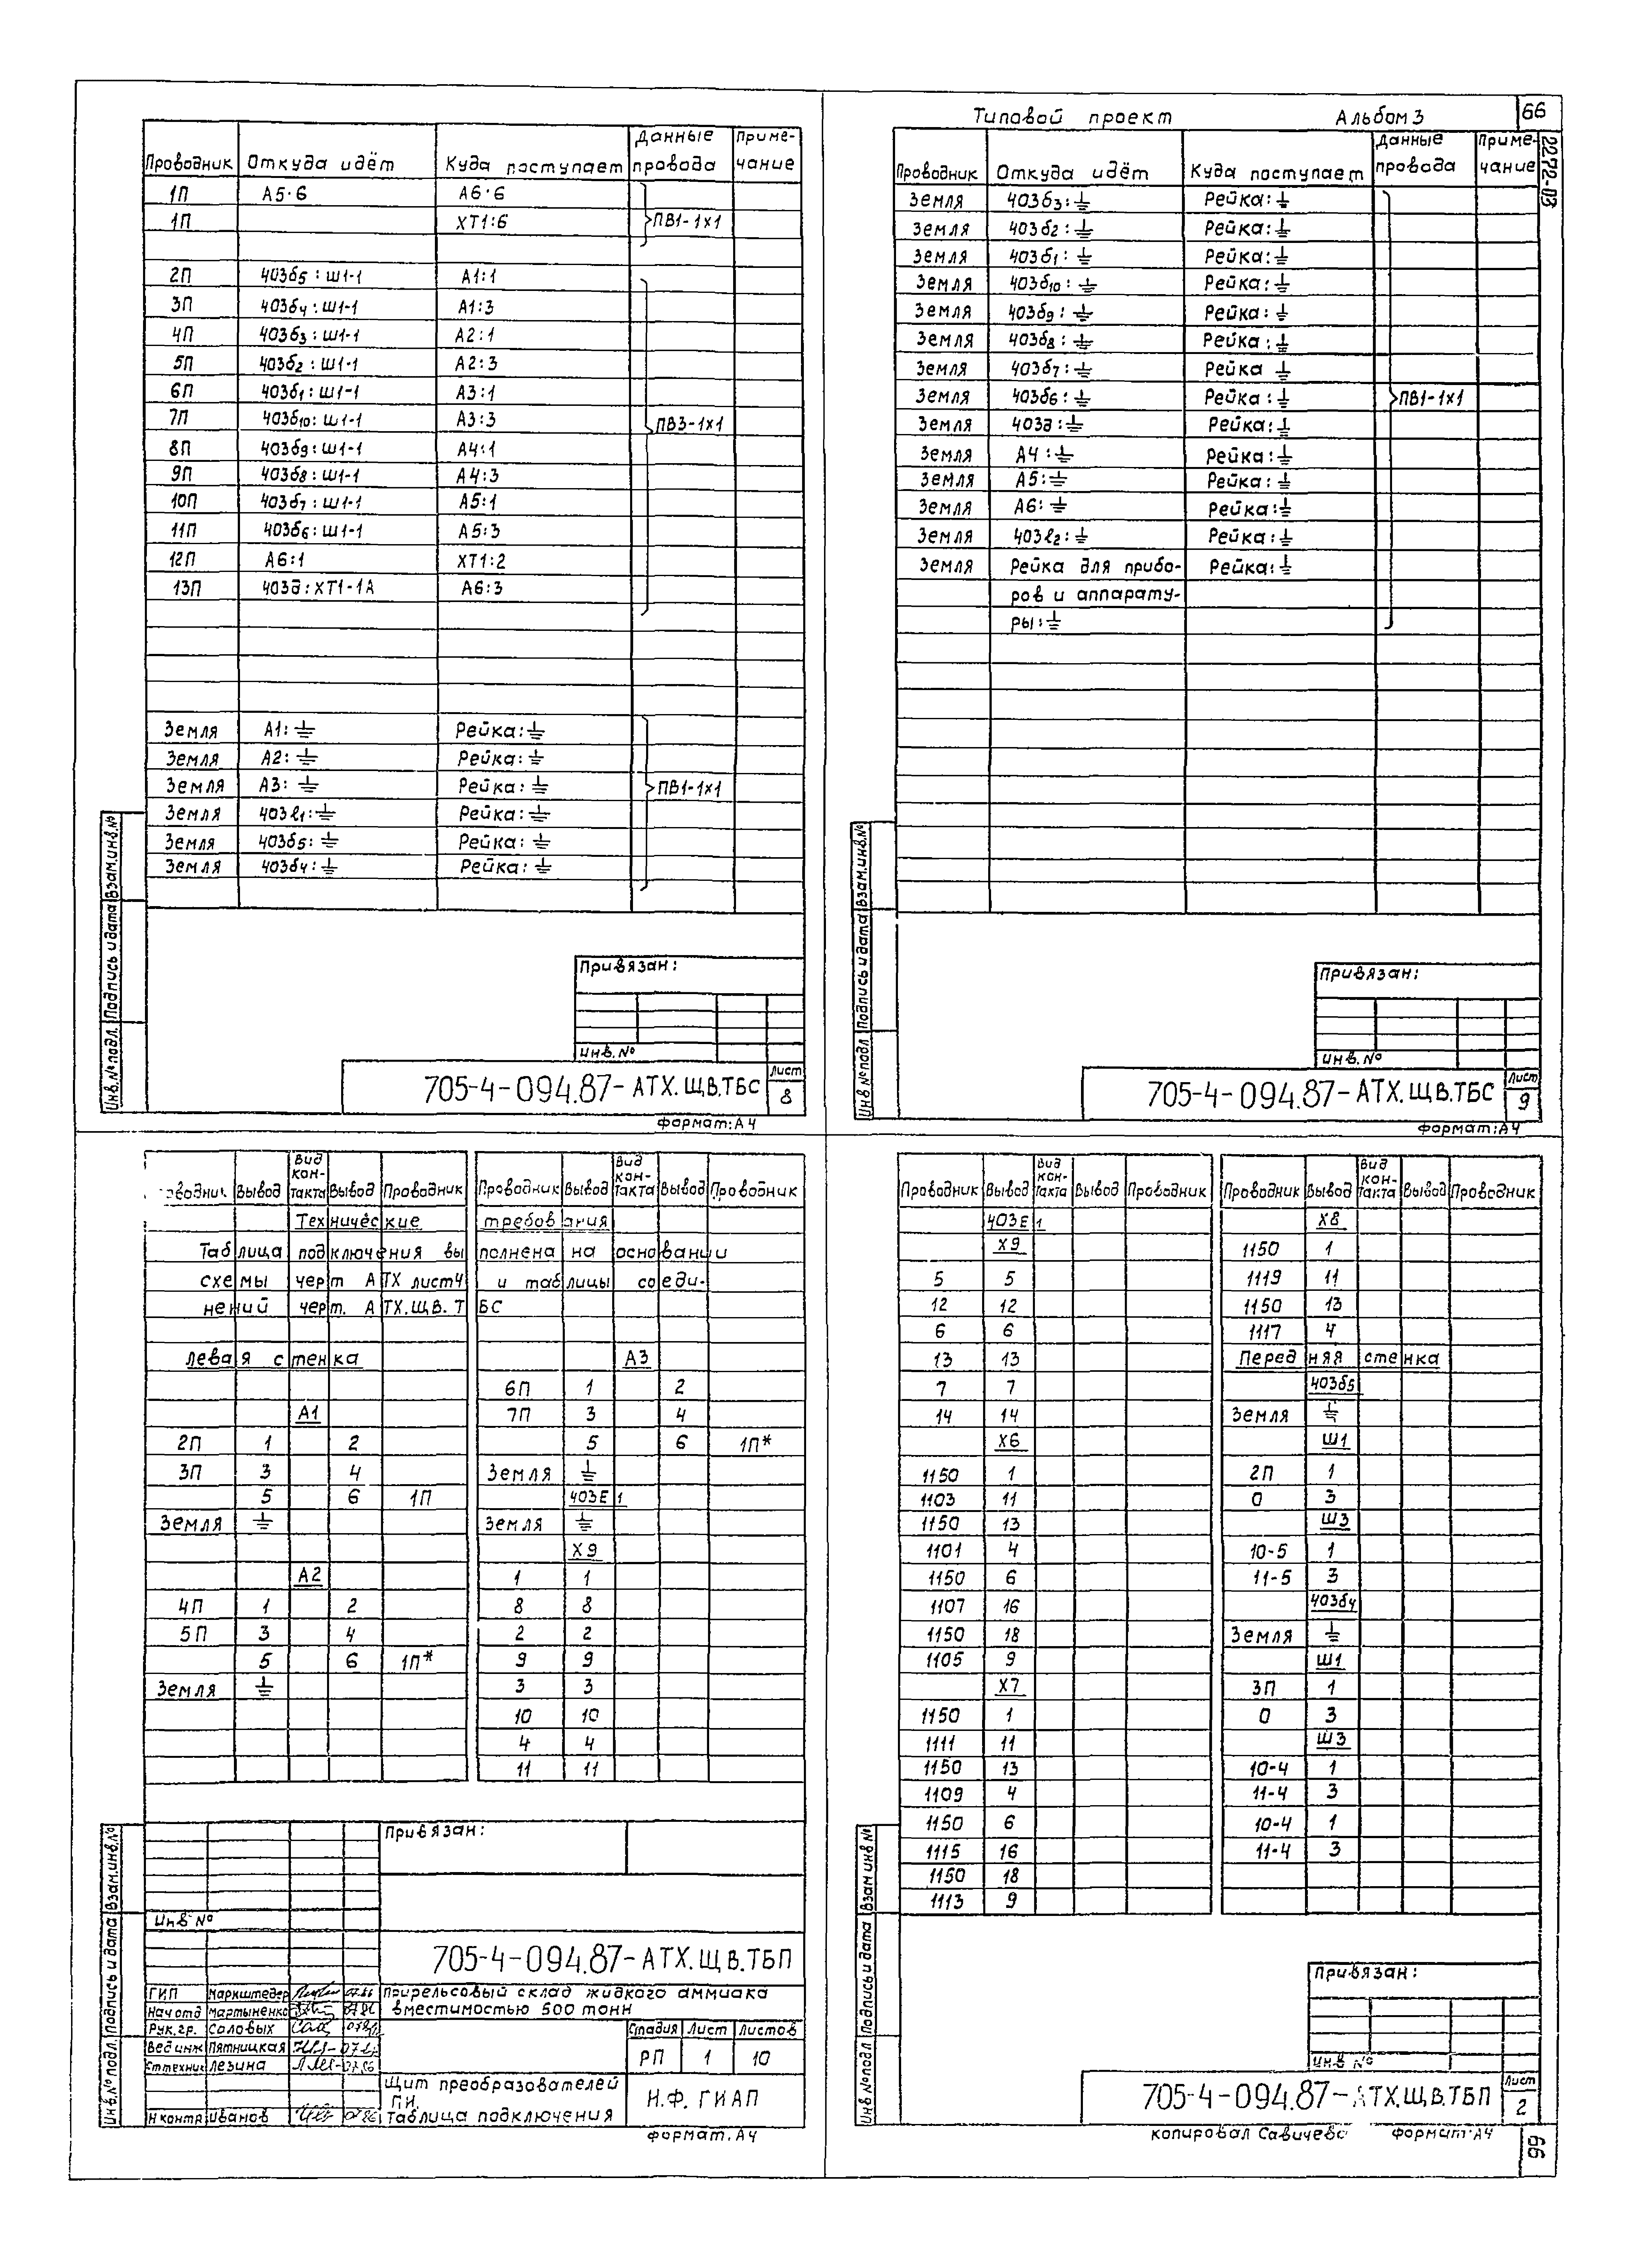 Типовой проект Альбом 3 66
2272-03
Проводник Откуда идёт Куда поступает Данные провода Примечание
1П А5·6 А6·6
1П ХТ1:6 ПВ1-1х1
2П 403б5:Ш1-1 А1:1
3П 403б4:Ш1-1 А1:3
4П 403б3:Ш1-1 А2:1
5П 403б2:Ш1-1 А2:3
6П 403б1:Ш1-1 А3:1
7П 403б10:Ш1-1 А3:3 ПВ3-1х1
8П 403б9:Ш1-1 А4:1
9П 403б8:Ш1-1 А4:3
10П 403б7:Ш1-1 А5:1
11П 403б6:Ш1-1 А5:3
12П А6:1 ХТ1:2
13П 403д:ХТ1-1А А6:3
Земля А1:⏚ Рейка:⏚
Земля А2:⏚ Рейка:⏚
Земля А3:⏚ Рейка:⏚ ПВ1-1х1
Земля 403е1:⏚ Рейка:⏚
Земля 403б5:⏚ Рейка:⏚
Земля 403б4:⏚ Рейка:⏚
Привязан:
Инв.№
705-4-094.87-АТХ.Щ.В.ТБС Лист 8
Инв.№ подл. Подпись и дата Взам.инв.№
формат:А4
Проводник Откуда идёт Куда поступает Данные провода Примечание
Земля 403б3:⏚ Рейка:⏚
Земля 403б2:⏚ Рейка:⏚
Земля 403б1:⏚ Рейка:⏚
Земля 403б10:⏚ Рейка:⏚
Земля 403б9:⏚ Рейка:⏚
Земля 403б8:⏚ Рейка:⏚
Земля 403б7:⏚ Рейка ⏚
Земля 403б6:⏚ Рейка:⏚ ПВ1-1х1
Земля 403д:⏚ Рейка:⏚
Земля А4:⏚ Рейка:⏚
Земля А5:⏚ Рейка:⏚
Земля А6:⏚ Рейка:⏚
Земля 403е2:⏚ Рейка:⏚
Земля Рейка для прибо- Рейка:⏚
ров и аппарату-
ры:⏚
Привязан:
Инв.№
705-4-094.87-АТХ.Щ.В.ТБС Лист 9
Инв №подл Подпись и дата Взам.инв.№
формат:А4
Проводник Вывод Вид контакта Вывод Проводник Проводник Вывод Вид контакта Вывод Проводник
Технические требования
Таблица подключения выполнена на основании
схемы черт АТХ лист4 и таблицы соеди-
нений черт. АТХ.Щ.В.ТБС
Левая стенка А3
6П 1 2
А1 7П 3 4
2П 1 2 5 6 1П*
3П 3 4 Земля ⏚
5 6 1П 403Е1
Земля ⏚ Земля ⏚
Х9
А2 1 1
4П 1 2 8 8
5П 3 4 2 2
5 6 1П* 9 9
Земля ⏚ 3 3
10 10
4 4
11 11
Привязан:
Инв №
705-4-094.87-АТХ.Щ.В.ТБП
ГИП Маркштедер 07.86
Нач отд Мартыненко 07.86
Рук.гр. Саловых 07.86
Вед инж Пятницкая 07.86
Ст техник Лезина 07.86
Н контр Иванов 07.86
Прирельсовый склад жидкого аммиака
вместимостью 500 тонн
Стадия Лист Листов
РП 1 10
Щит преобразователей
ПИ.
Таблица подключения
Н.Ф. ГИАП
Инв.№ подл. Подпись и дата Взам.инв.№
формат.А4
Проводник Вывод Вид контакта Вывод Проводник Проводник Вывод Вид контакта Вывод Проводник
403Е1 Х8
Х9 1150 1
5 5 1119 11
12 12 1150 13
6 6 1117 4
13 13 Передняя стенка
7 7 403б5
14 14 Земля ⏚
Х6 Ш1
1150 1 2П 1
1103 11 0 3
1150 13 Ш3
1101 4 10-5 1
1150 6 11-5 3
1107 16 403б4
1150 18 Земля ⏚
1105 9 Ш1
Х7 3П 1
1150 1 0 3
1111 11 Ш3
1150 13 10-4 1
1109 4 11-4 3
1150 6 10-4 1
1115 16 11-4 3
1150 18
1113 9
Привязан:
Инв №
705-4-094.87-АТХ.Щ.В.ТБП Лист 2
Инв №подл Подпись и дата Взам инв №
копировал Савичева формат:А4
66